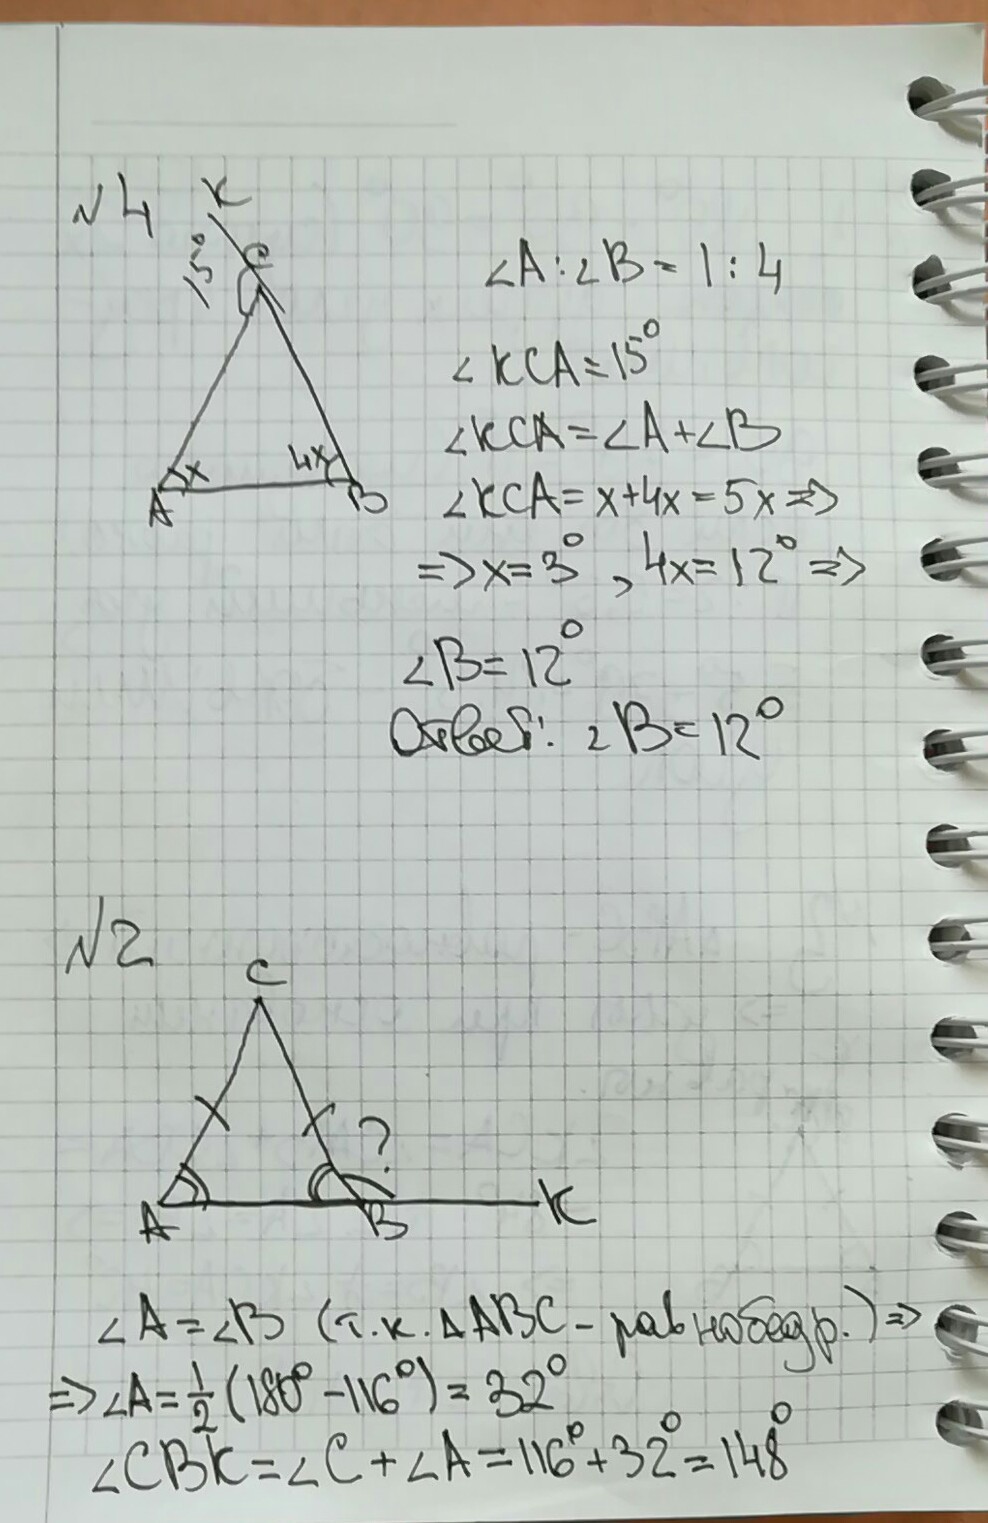 №4
K
C
15°
x
4x
A
B
∠A:∠B=1:4
∠KCA=15°
∠KCA=∠A+∠B
∠KCA=x+4x=5x=>
=>x=3°, 4x=12°=>
∠B=12°
Ответ: ∠B=12°
№2
C
?
A
B
K
∠A=∠B (т.к. △ABC - равнобедр.)=>
=>∠A=1/2(180°-116°)=32°
∠CBK=∠C+∠A=116°+32°=148°